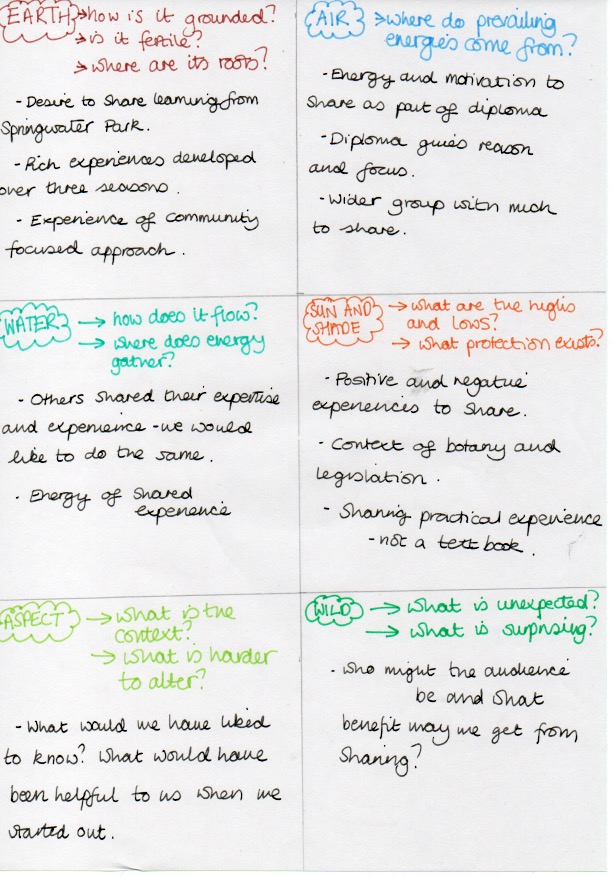 EARTH → how is it grounded?
→ is it fertile?
→ where are its roots?
- Desire to share learning from
Springwater Park.
- Rich experiences developed
over three seasons.
- Experience of community
focused approach.
AIR → where do prevailing
energies come from?
- Energy and motivation to
share as part of diploma
- Diploma gives reason
and focus.
- Wider group with much
to share.
WATER → how does it flow?
→ where does energy
gather?
- Others shared their expertise
and experience - we would
like to do the same.
- Energy of shared
experience
SUN AND
SHADE → what are the highs
and lows?
→ what protection exists?
- Positive and negative
experiences to share.
- Context of botany and
legislation.
- Sharing practical experience
- not a text book.
ASPECT → what is the
context?
→ what is harder
to alter?
- What would we have liked
to know? What would have
been helpful to us when we
started out.
WILD → what is unexpected?
→ what is surprising?
- who might the audience
be and what
benefit may we get from
sharing?